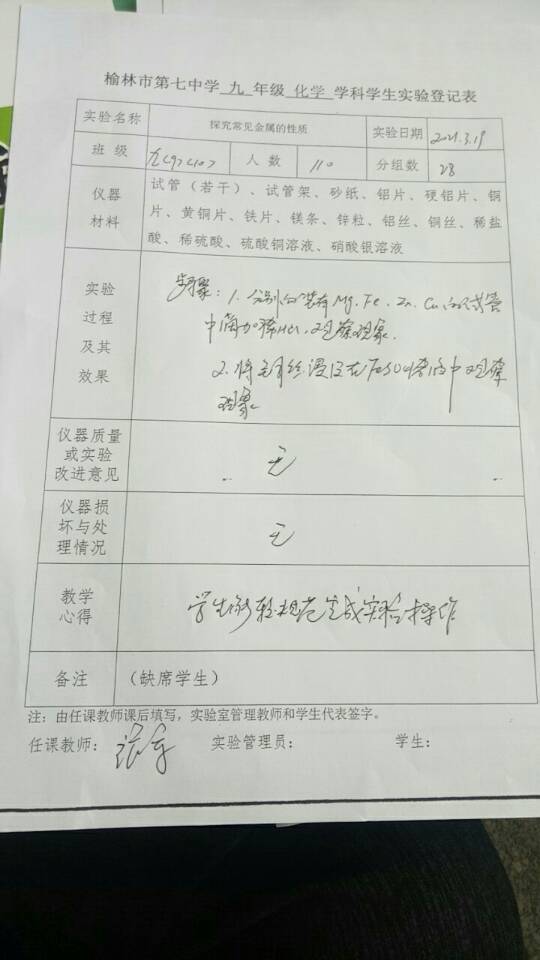 榆林市第七中学 九 年级 化学 学科学生实验登记表
实验名称 探究常见金属的性质 实验日期 2021.3.19
班 级 人 数 110 分组数 28
仪器
材料
试管（若干）、试管架、砂纸、铝片、硬铝片、铜
片、黄铜片、铁片、镁条、锌粒、铝丝、铜丝、稀盐
酸、稀硫酸、硫酸铜溶液、硝酸银溶液
实验
过程
及其
效果
步骤：1. 分别向装有Mg. Fe. Zn. Cu的试管
中滴加稀HCl，观察现象.
2. 将 丝浸没在 中观察
现象
仪器质量
或实验
改进意见
无
仪器损
坏与处
理情况
无
教学
心得
学生能较规范完成实验操作
备注 （缺席学生）
注：由任课教师课后填写，实验室管理教师和学生代表签字。
任课教师： 实验管理员： 学生：